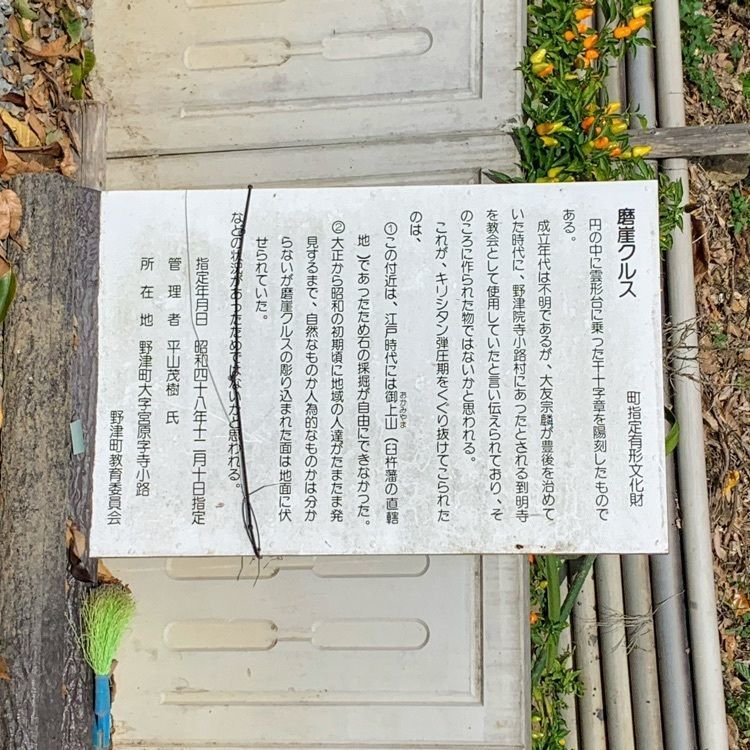 磨崖クルス
町指定有形文化財
円の中に雲形台に乗った干十字章を陽刻したもので
ある。
成立年代は不明であるが、大友宗麟が豊後を治めて
いた時代に、野津院寺小路村にあったとされる到明寺
を教会として使用していたと言い伝えられており、そ
のころに作られた物ではないかと思われる。
これが、キリシタン弾圧期をくぐり抜けてこられた
のは、
①この付近は、江戸時代には御上山（臼杵藩の直轄
おかみやま
地）であったため石の採掘が自由にできなかった。
②大正から昭和の初期頃に地域の人達がたまたま発
見するまで、自然なものか人為的なものかは分か
らないが磨崖クルスの彫り込まれた面は地面に伏
せられていた。
などの状況があったためではないかと思われる。
指定年月日 昭和四十八年十二月十日指定
管理者 平山茂樹 氏
所在地 野津町大字宮原字寺小路
野津町教育委員会